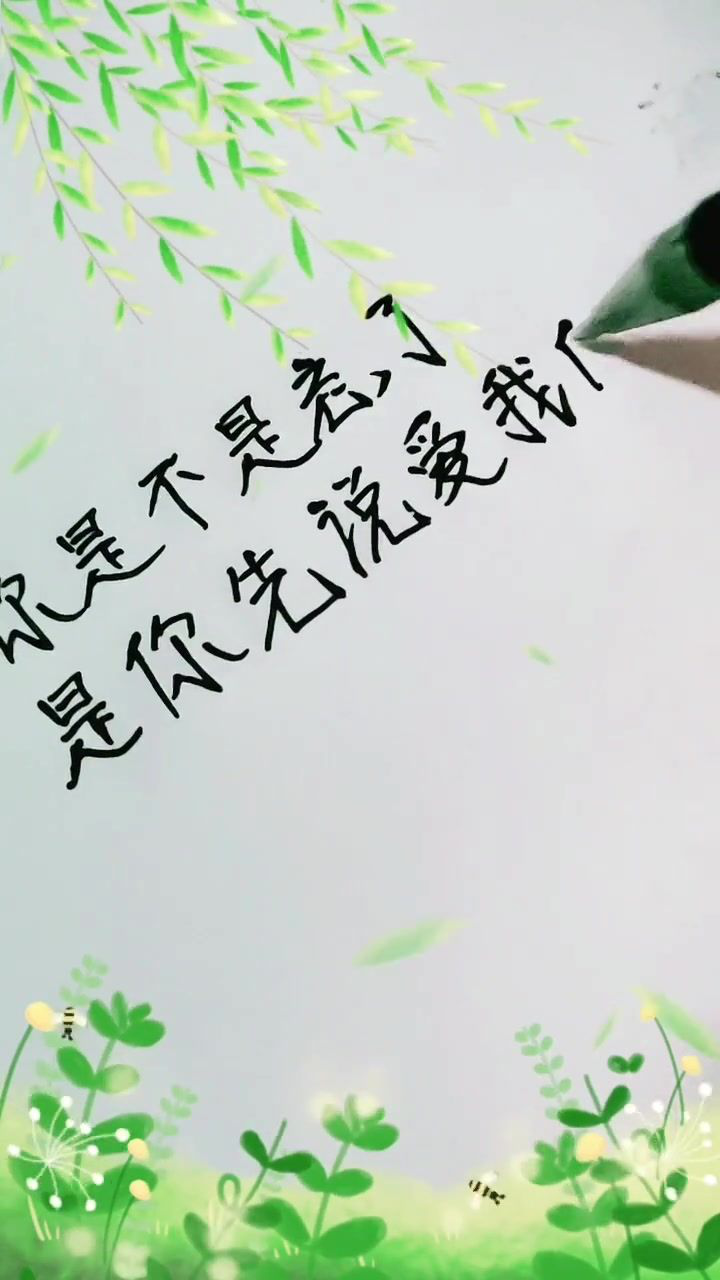 你是不是忘了
是你先说爱我